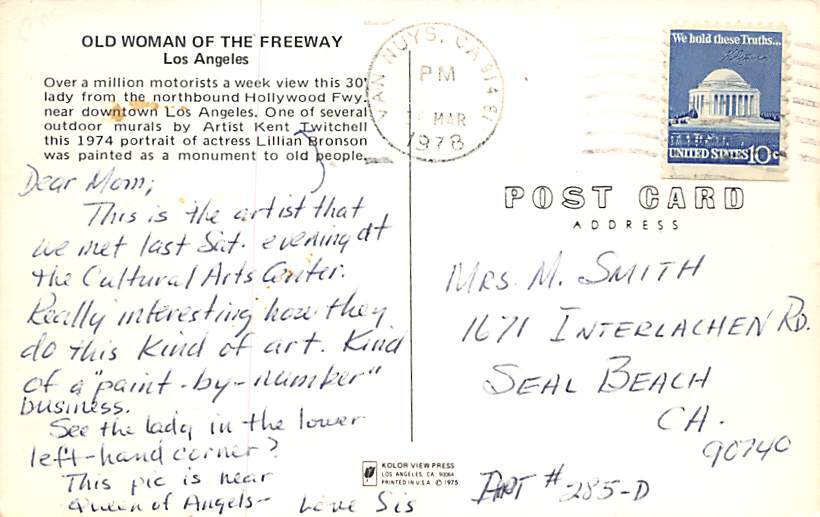 OLD WOMAN OF THE FREEWAY
Los Angeles
Over a million motorists a week view this 30'
lady from the northbound Hollywood Fwy.
near downtown Los Angeles. One of several
outdoor murals by Artist Kent Twitchell
this 1974 portrait of actress Lillian Bronson
was painted as a monument to old people.
Dear Mom;
This is the artist that
we met last Sat. evening at
the Cultural Arts Center.
Really interesting how they
do this kind of art. Kind
of a "paint-by-number"
business.
See the lady in the lower
left-hand corner?
This pic is near
Queen of Angels-
Love Sis
VAN NUYS, CA 914
PM
MAR
1978
We hold these Truths...
UNITED STATES 10c
POST CARD
ADDRESS
MRS. M. SMITH
1671 INTERLACHEN RD.
SEAL BEACH
CA.
90740
APT # 285-D
KOLOR VIEW PRESS
LOS ANGELES, CA. 90064
PRINTED IN U.S.A. © 1975